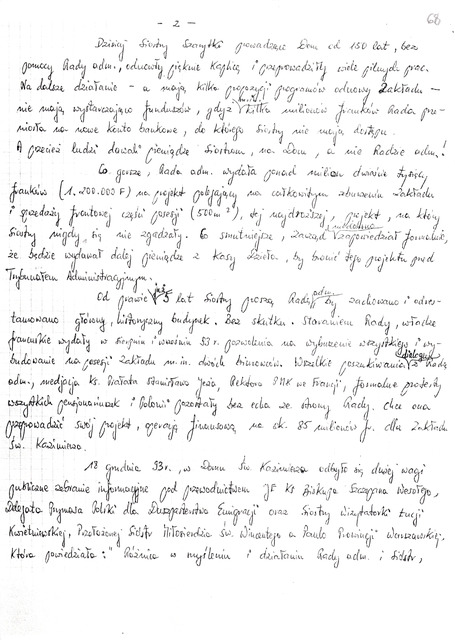 - 2 -
68
Dzisiaj Siostry Szarytki prowadzenie Dom od 150 lat, bez
pomocy Rady adm., odnowiły piękne Kaplicę i przeprowadziły wiele pilnych prac.
Na dalsze działanie - a mają kilka propozycji programów odnowy Zakładu -
nie mają wystarczająco funduszów, gdyż kilka milionów franków Rada prze-
niosła na nowe konto bankowe, do którego Siostry nie mają dostępu.
A przecież ludzi dawali pieniądze Siostrom, na Dom, a nie Radzie adm.!
Co gorsze, Rada adm. wydała ponad milion dwieście tysięcy
franków (1.200.000 F) na projekt polegający na całkowitym zburzeniu Zakładu
i sprzedaży frontowej części posesji (500 m²), tej najdroższej, projekt, na który
Siostry nigdy się nie zgadzały. Co smutniejsze, zarząd zapowiedział formalnie,
że będzie wydawał dalej pieniądze z Kasy Dzieła, by bronić tego projektu przed
Trybunałem Administracyjnym.
Od prawie już 5 lat Siostry proszą Radę adm. by zachowano i odres-
taurowano główny, historyczny budynek. Bez skutku. Staraniem Rady, władze
francuskie wydały w sierpniu i wrześniu 93 r. pozwolenia na wyburzenie wszystkiego i wy-
budowanie na posesji Zakładu m.in. dwóch biurowców. Wszelkie poszukiwania dialogu z Radą
adm., mediacja ks. Prałata Stanisława Jeża, Rektora PMK we Francji, formalne protesty
wszystkich pensjonariuszek i Polonii pozostały bez echa ze strony Rady. Chce ona
przeprowadzić swój projekt, operację finansową na ok. 85 milionów fr. dla Zakładu
Św. Kazimierza.
18 grudnia 93 r., w Domu Św. Kazimierza odbyło się dużej wagi
publiczne zebranie informacyjne pod przewodnictwem JE Ks Biskupa Szczepana Wesołego,
Delegata Prymasa Polski dla Duszpasterstwa Emigracji oraz Siostry Wizytatorki Łucji
Kwietniewskiej, Przełożonej Sióstr Miłosierdzia Św. Wincentego a Paulo Prowincji Warszawskiej.
Która powiedziała: "Różnica w myśleniu i działaniu Rady adm. i Sióstr,